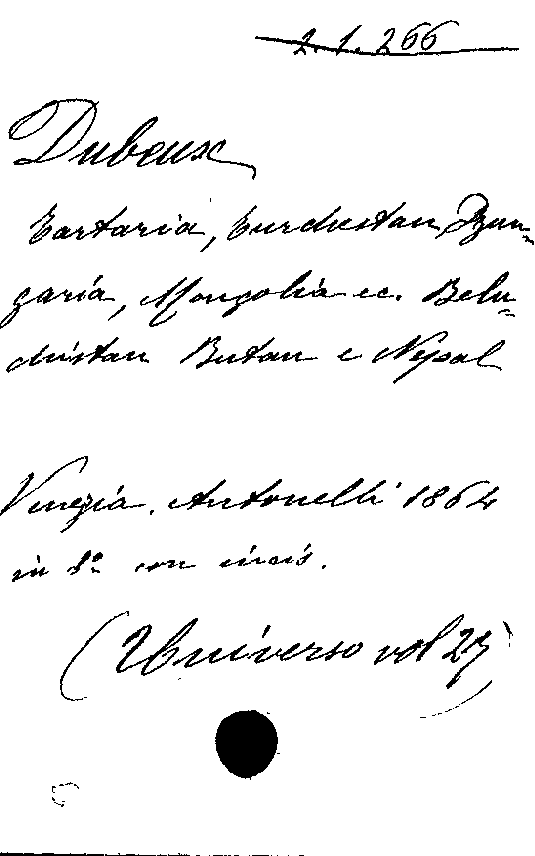 2. 1. 266
Dubeux
Tartaria, Turchestan Dzun=
garia, Mongolia ec. Belu=
chistan Butan e Nepal
Venezia. Antonelli 1864
in 8° con incis.
(Universo vol 27)